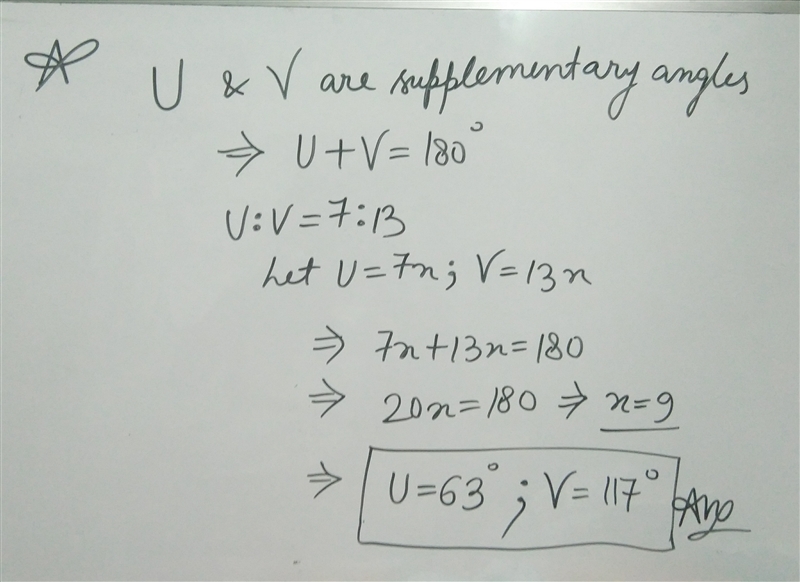 U & V are supplementary angles
⇒ U+V=180°
U:V=7:13
Let U=7x; V=13x
⇒ 7x+13x=180
⇒ 20x=180 ⇒ x=9
⇒ U=63°; V=117° Ans